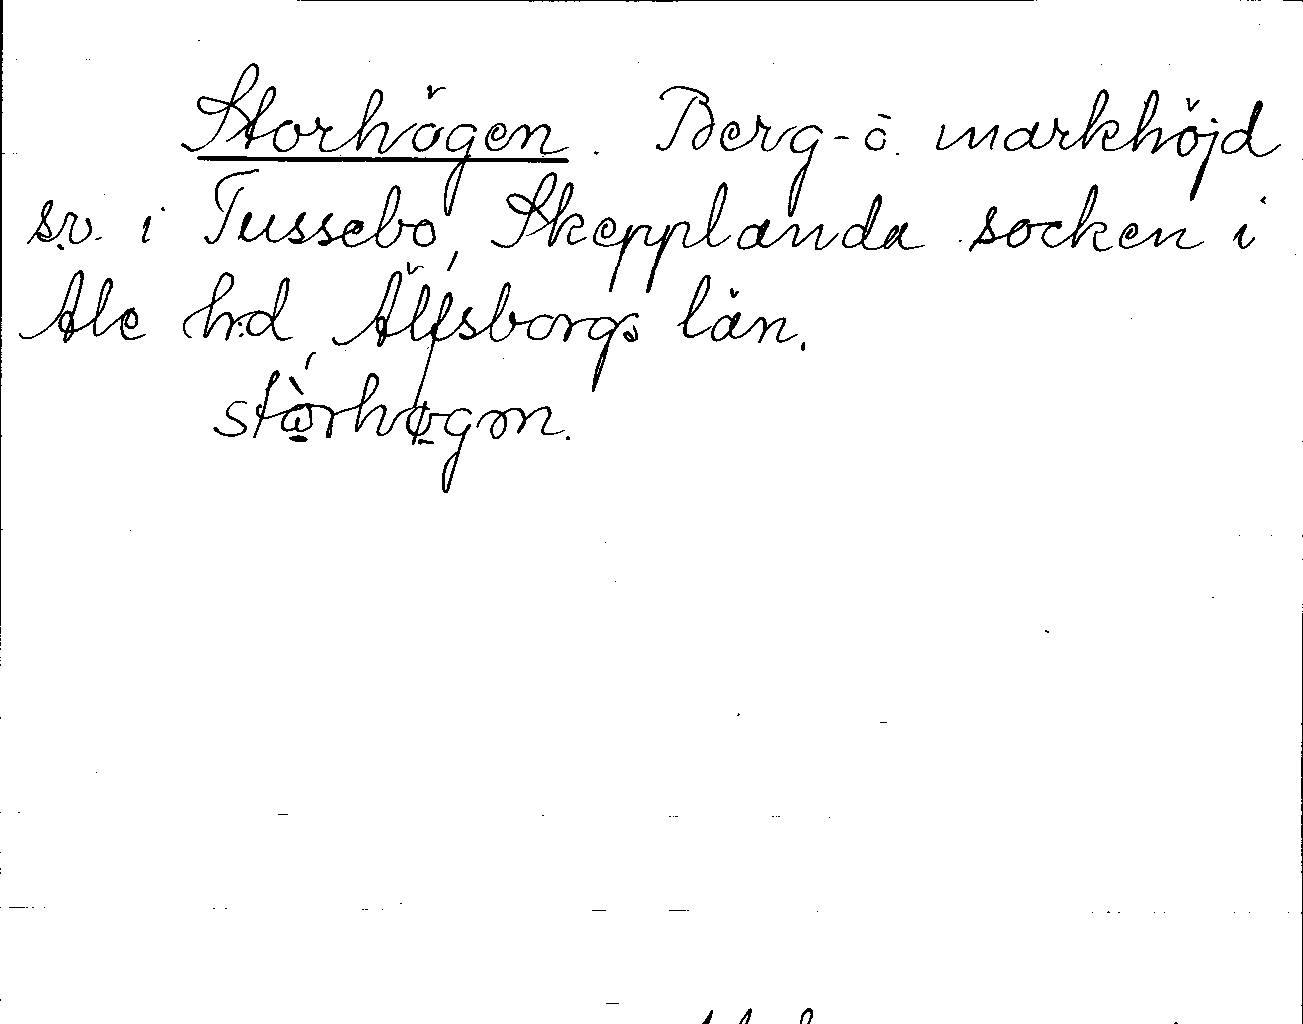 Storhögen. Berg- o. markhöjd
s.v. i Tussebo, Skepplanda socken i
Ale hd, Älfsborgs län.
stòrhøgən.